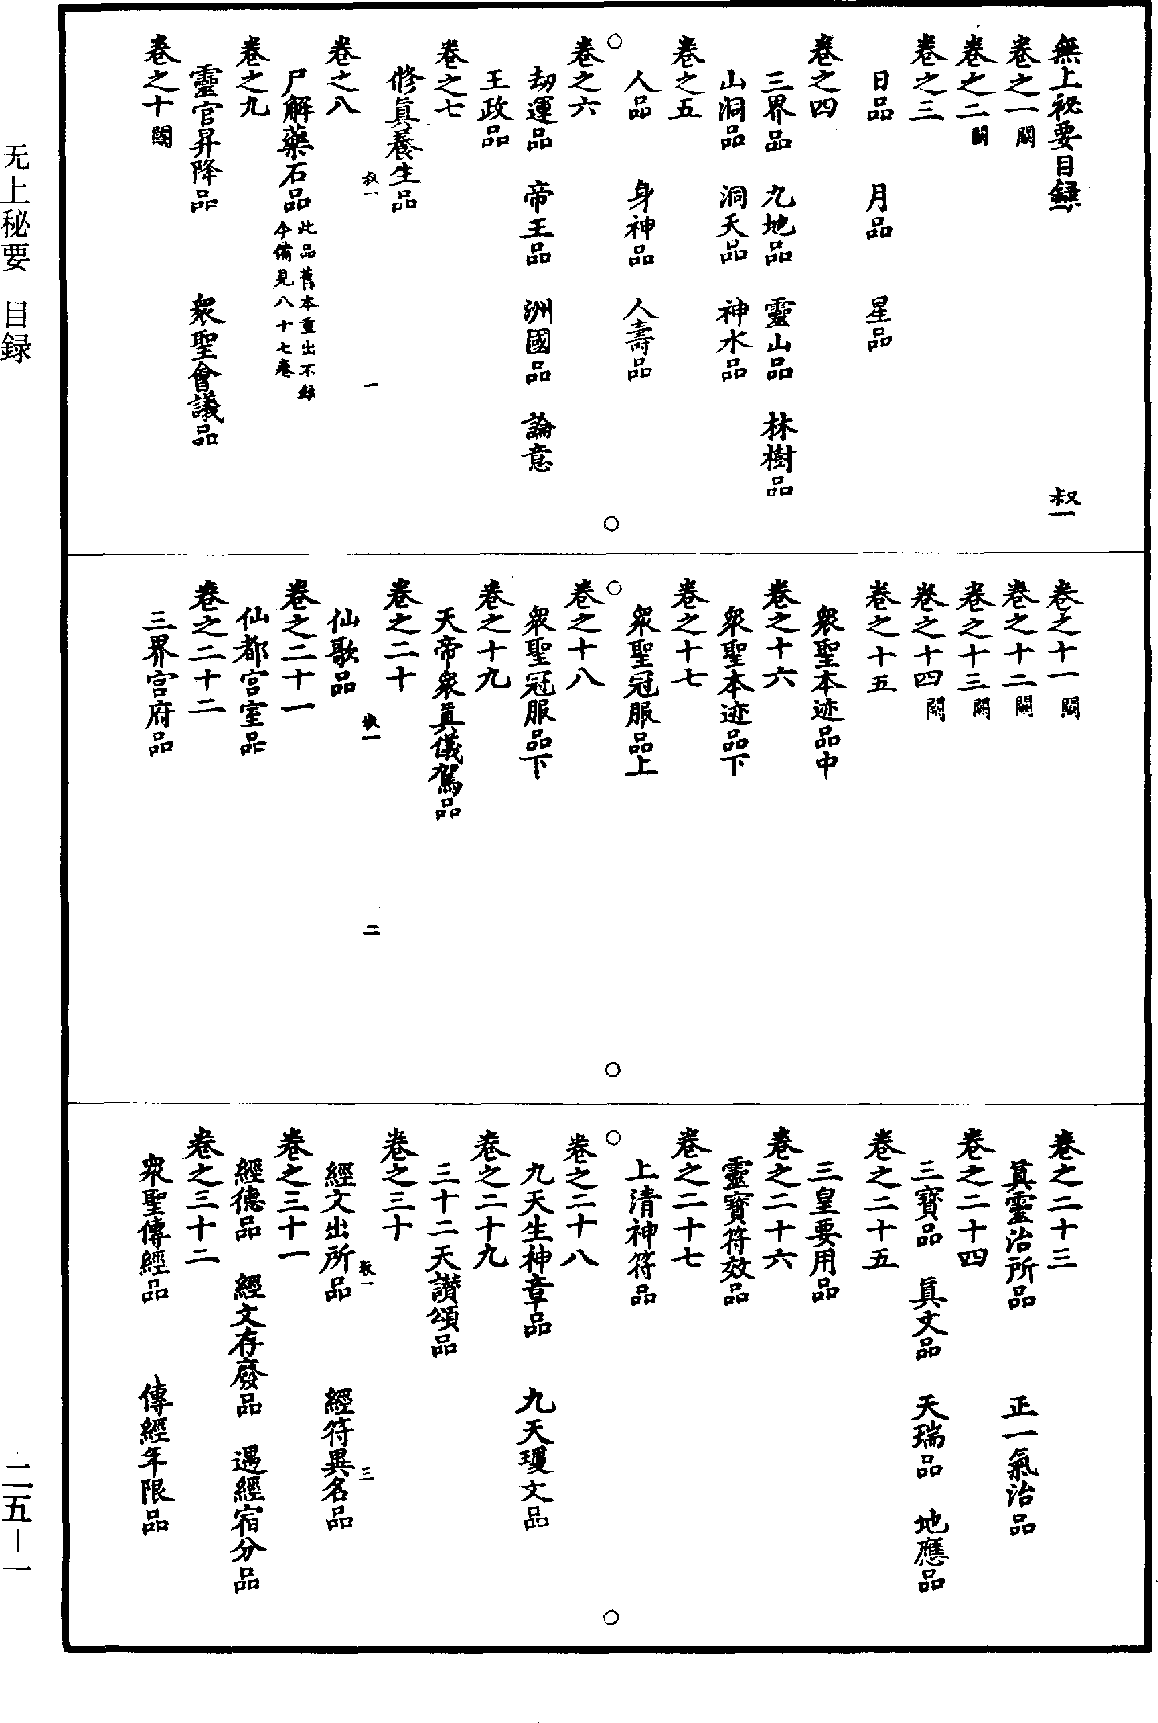 無上秘要目録 叔一
卷之一闕
卷之二闕
卷之三
日品 月品 星品
卷之四
三界品 九地品 靈山品 林樹品
山洞品 洞天品 神水品
卷之五
人品 身神品 人壽品
卷之六
劫運品 帝王品 洲國品 論意
王政品
卷之七
修眞養生品
叔一 一
卷之八
尸解藥石品 此品舊本重出不錄
今備見八十七卷
卷之九
靈官昇降品 衆聖會議品
卷之十闕
卷之十一闕
卷之十二闕
卷之十三闕
卷之十四闕
卷之十五
衆聖本迹品中
卷之十六
衆聖本迹品下
卷之十七
衆聖冠服品上
卷之十八
衆聖冠服品下
卷之十九
天帝衆眞儀駕品
卷之二十
叔一 二
仙歌品
卷之二十一
仙都宫室品
卷之二十二
三界宫府品
卷之二十三
眞靈治所品 正一氣治品
卷之二十四
三寳品 眞文品 天瑞品 地應品
卷之二十五
三皇要用品
卷之二十六
靈寳符效品
卷之二十七
上清神符品
卷之二十八
九天生神章品 九天瓊文品
卷之二十九
三十二天讃頌品
卷之三十
叔一 三
經文出所品 經符異名品
卷之三十一
經德品 經文存廢品 遇經宿分品
卷之三十二
衆聖傳經品 傳經年限品
无上秘要 目録
二五—一